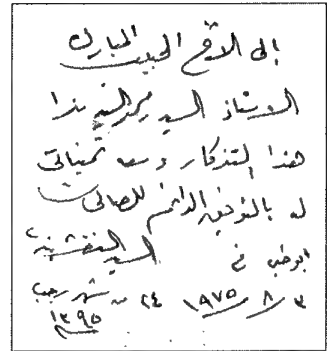 إلى الأخ الحبيب المبارك
الاستاذ السيد
هذا التذكار وسعه تمنياتي
له بالتوفيق الدائم
السيد
ابوظبي في
٣ / ٨ / ١٩٧٥ ٢٤ من شهر رجب
١٣٩٥